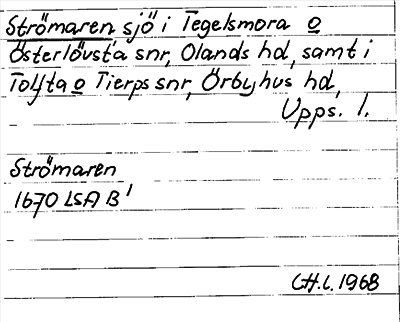 Strömaren sjö i Tegelsmora o
Österlövsta snr, Olands hd, samt i
Tolfta o Tierps snr, Örbyhus hd,
Upps. l.
Strömaren
1670 LSA B¹
CH.L. 1968